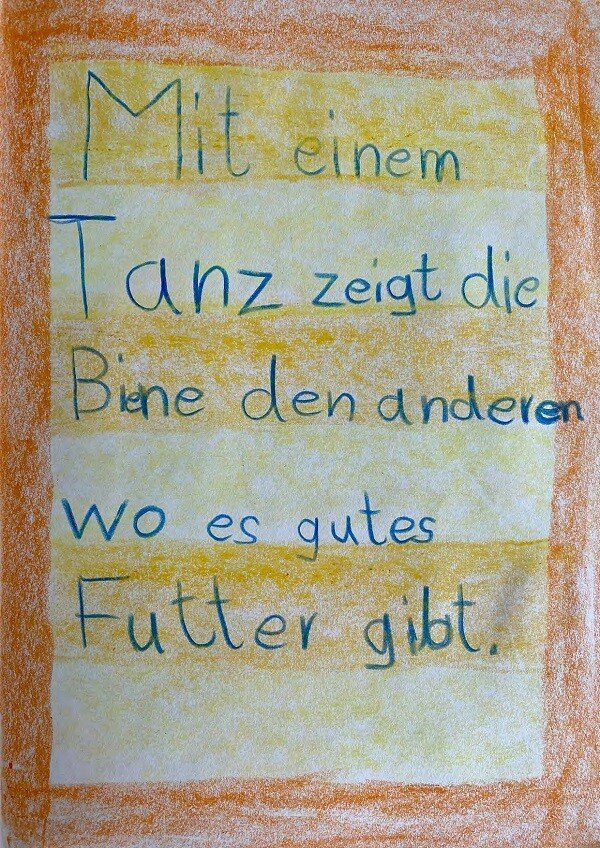 Mit einem
Tanz zeigt die
Biene den anderen
wo es gutes
Futter gibt.